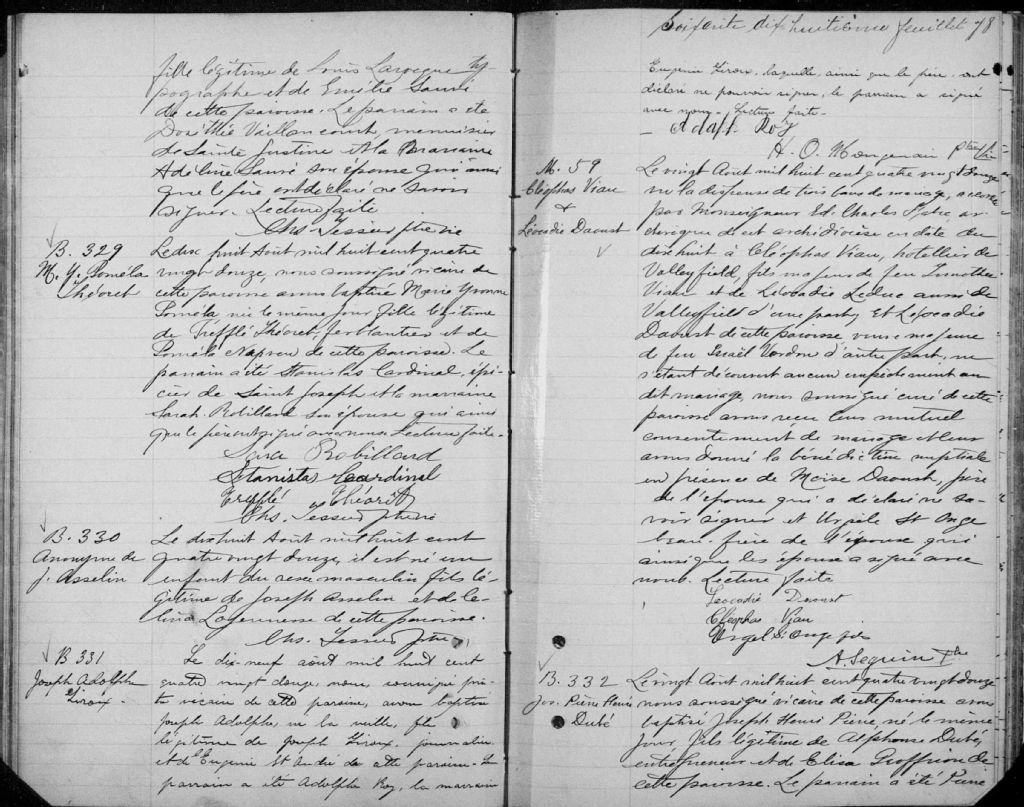 fille légitime de Louis Larocque ty-
pographe et de Emélie Sauvé
de cette paroisse. Le parrain a été
Dosithée Vaillancourt, menuisier
de Sainte Justine et la marraine
Adeline Sauvé son épouse qui ainsi
que le père ont déclaré ne savoir
signer. Lecture faite
Chs. Tessier ptre vic
B. 329
M. Y. Poméla
Théoret
Le dix huit Août mil huit cent quatre
vingt douze, nous soussigné vicaire de
cette paroisse avons baptisé Marie Yvonne
Poméla née le même jour fille légitime
de Treffle Théoret, ferblantier et de
Poméla de cette paroisse. Le
parrain a été Stanislas Cardinal, épi-
cier de Saint Joseph et la marraine
Sarah Robillard son épouse qui ainsi
que le père ont signé avec nous. Lecture faite.
Sara Robillard
Stanislas Cardinal
Trefflé Théorêt
Chs. Tessier ptre vic
B. 330
Anonyme de
J. Asselin
Le dix huit Août mil huit cent
quatre vingt douze, il est né un
enfant du sexe masculin fils lé-
gitime de Joseph Asselin et de Cé-
lina Lajeunesse de cette paroisse.
Chs. Tessier ptre
B 331
Joseph Adolphe
Giroux.
Le dix-neuf août mil huit cent
quatre vingt douze, nous, soussigné prê-
tre vicaire de cette paroisse, avons baptisé
Joseph Adolphe, né la veille, fils
légitime de Joseph Giroux, journalier
et de Eugénie St André de cette paroisse. Le
parrain a été Adolphe Roy, la marraine
Soixante dix huitième feuillet 78
Eugénie Giroux, laquelle, ainsi que le père, ont
déclaré ne pouvoir signer, le parrain a signé
avec nous. Lecture faite.
Adolf. Roy
H. O.
M. 59
Cléophas Viau
&
Léocadie Daoust
Le vingt Août mil huit cent quatre vingt douze
vu la dispense de trois bans de mariage, accordée
par Monseigneur Ed. Charles Fabre, ar-
chevêque de cet archidiocèse en date du
dix huit à Cléophas Viau, hotellier de
Valleyfield, fils majeur de feu Timothée
Viau et de Léocadie Leduc aussi de
Valleyfield d'une part; et Léocadie
Daoust de cette paroisse veuve majeure
de feu Israël d'autre part, ne
s'étant découvert aucun empêchement au
dit mariage, nous soussigné curé de cette
paroisse avons reçu leur mutuel
consentement de mariage et leur
avons donné la bénédiction nuptiale
en présence de Moïse Daoust, père
de l'épouse qui a déclaré ne sa-
voir signer et Urgèle St Onge
beau-frère de l'épouse qui
ainsi que les époux a signé avec
nous. Lecture faite
Leocadie Daoust
Cléophas Viau
Urgel
A. Seguin Ptre
B. 332
Jos. Pierre Henri
Dubé
Le vingt Août mil huit cent quatre vingt douze
nous soussigné vicaire de cette paroisse avons
baptisé Joseph Henri Pierre, né le même
jour, fils légitime de Alphonse Dubé,
entrepreneur et de Elisa Geoffrion de
cette paroisse. Le parrain a été Pierre